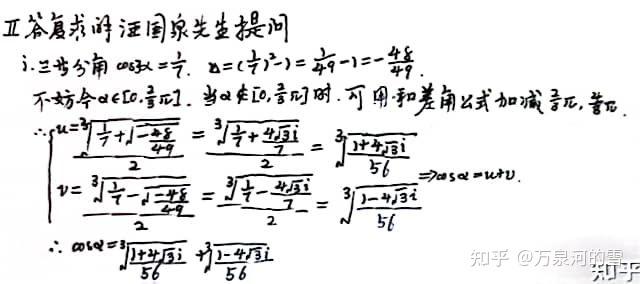 II 答复求解汪国泉先生提问
i. 三等分角 cos3α = 1/7. Δ = (1/7)² - 1 = 1/49 - 1 = -48/49.
不妨令 α∈[0, 2/3π]. 当 α∉[0, 2/3π] 时. 可用和差角公式加减 2/3π, 4/3π.
∴ { u = ∛(1/7 + √(-48/49)) / 2 = ∛(1/7 + 4√3i/7) / 2 = ∛((1+4√3i)/56)
v = ∛(1/7 - √(-48/49)) / 2 = ∛(1/7 - 4√3i/7) / 2 = ∛((1-4√3i)/56) ⇒ cosα = u+v.
∴ cosα = ∛((1+4√3i)/56) + ∛((1-4√3i)/56)
知乎 @万泉河的雪
知乎